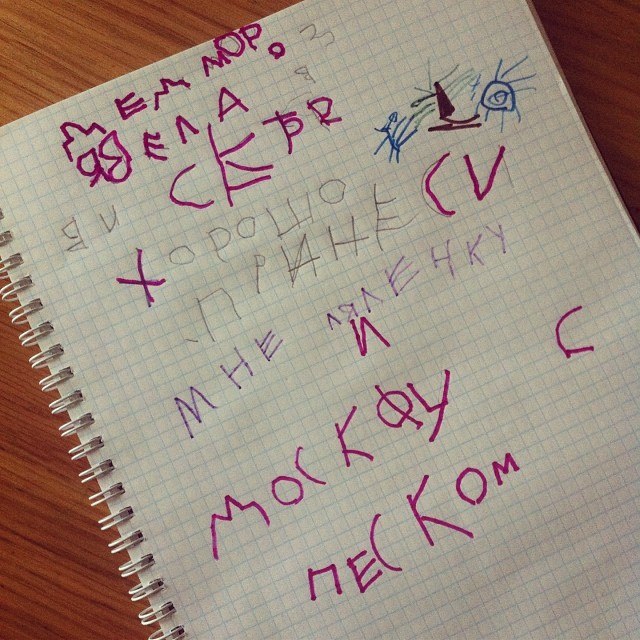 МОР.
Я ВЕЛА
СЕБЯ
ХОРОШО
ПРИНЕСИ
МНЕ ЛЯЛЕНКУ
И С
МОСКФУ
ПЕСКОМ